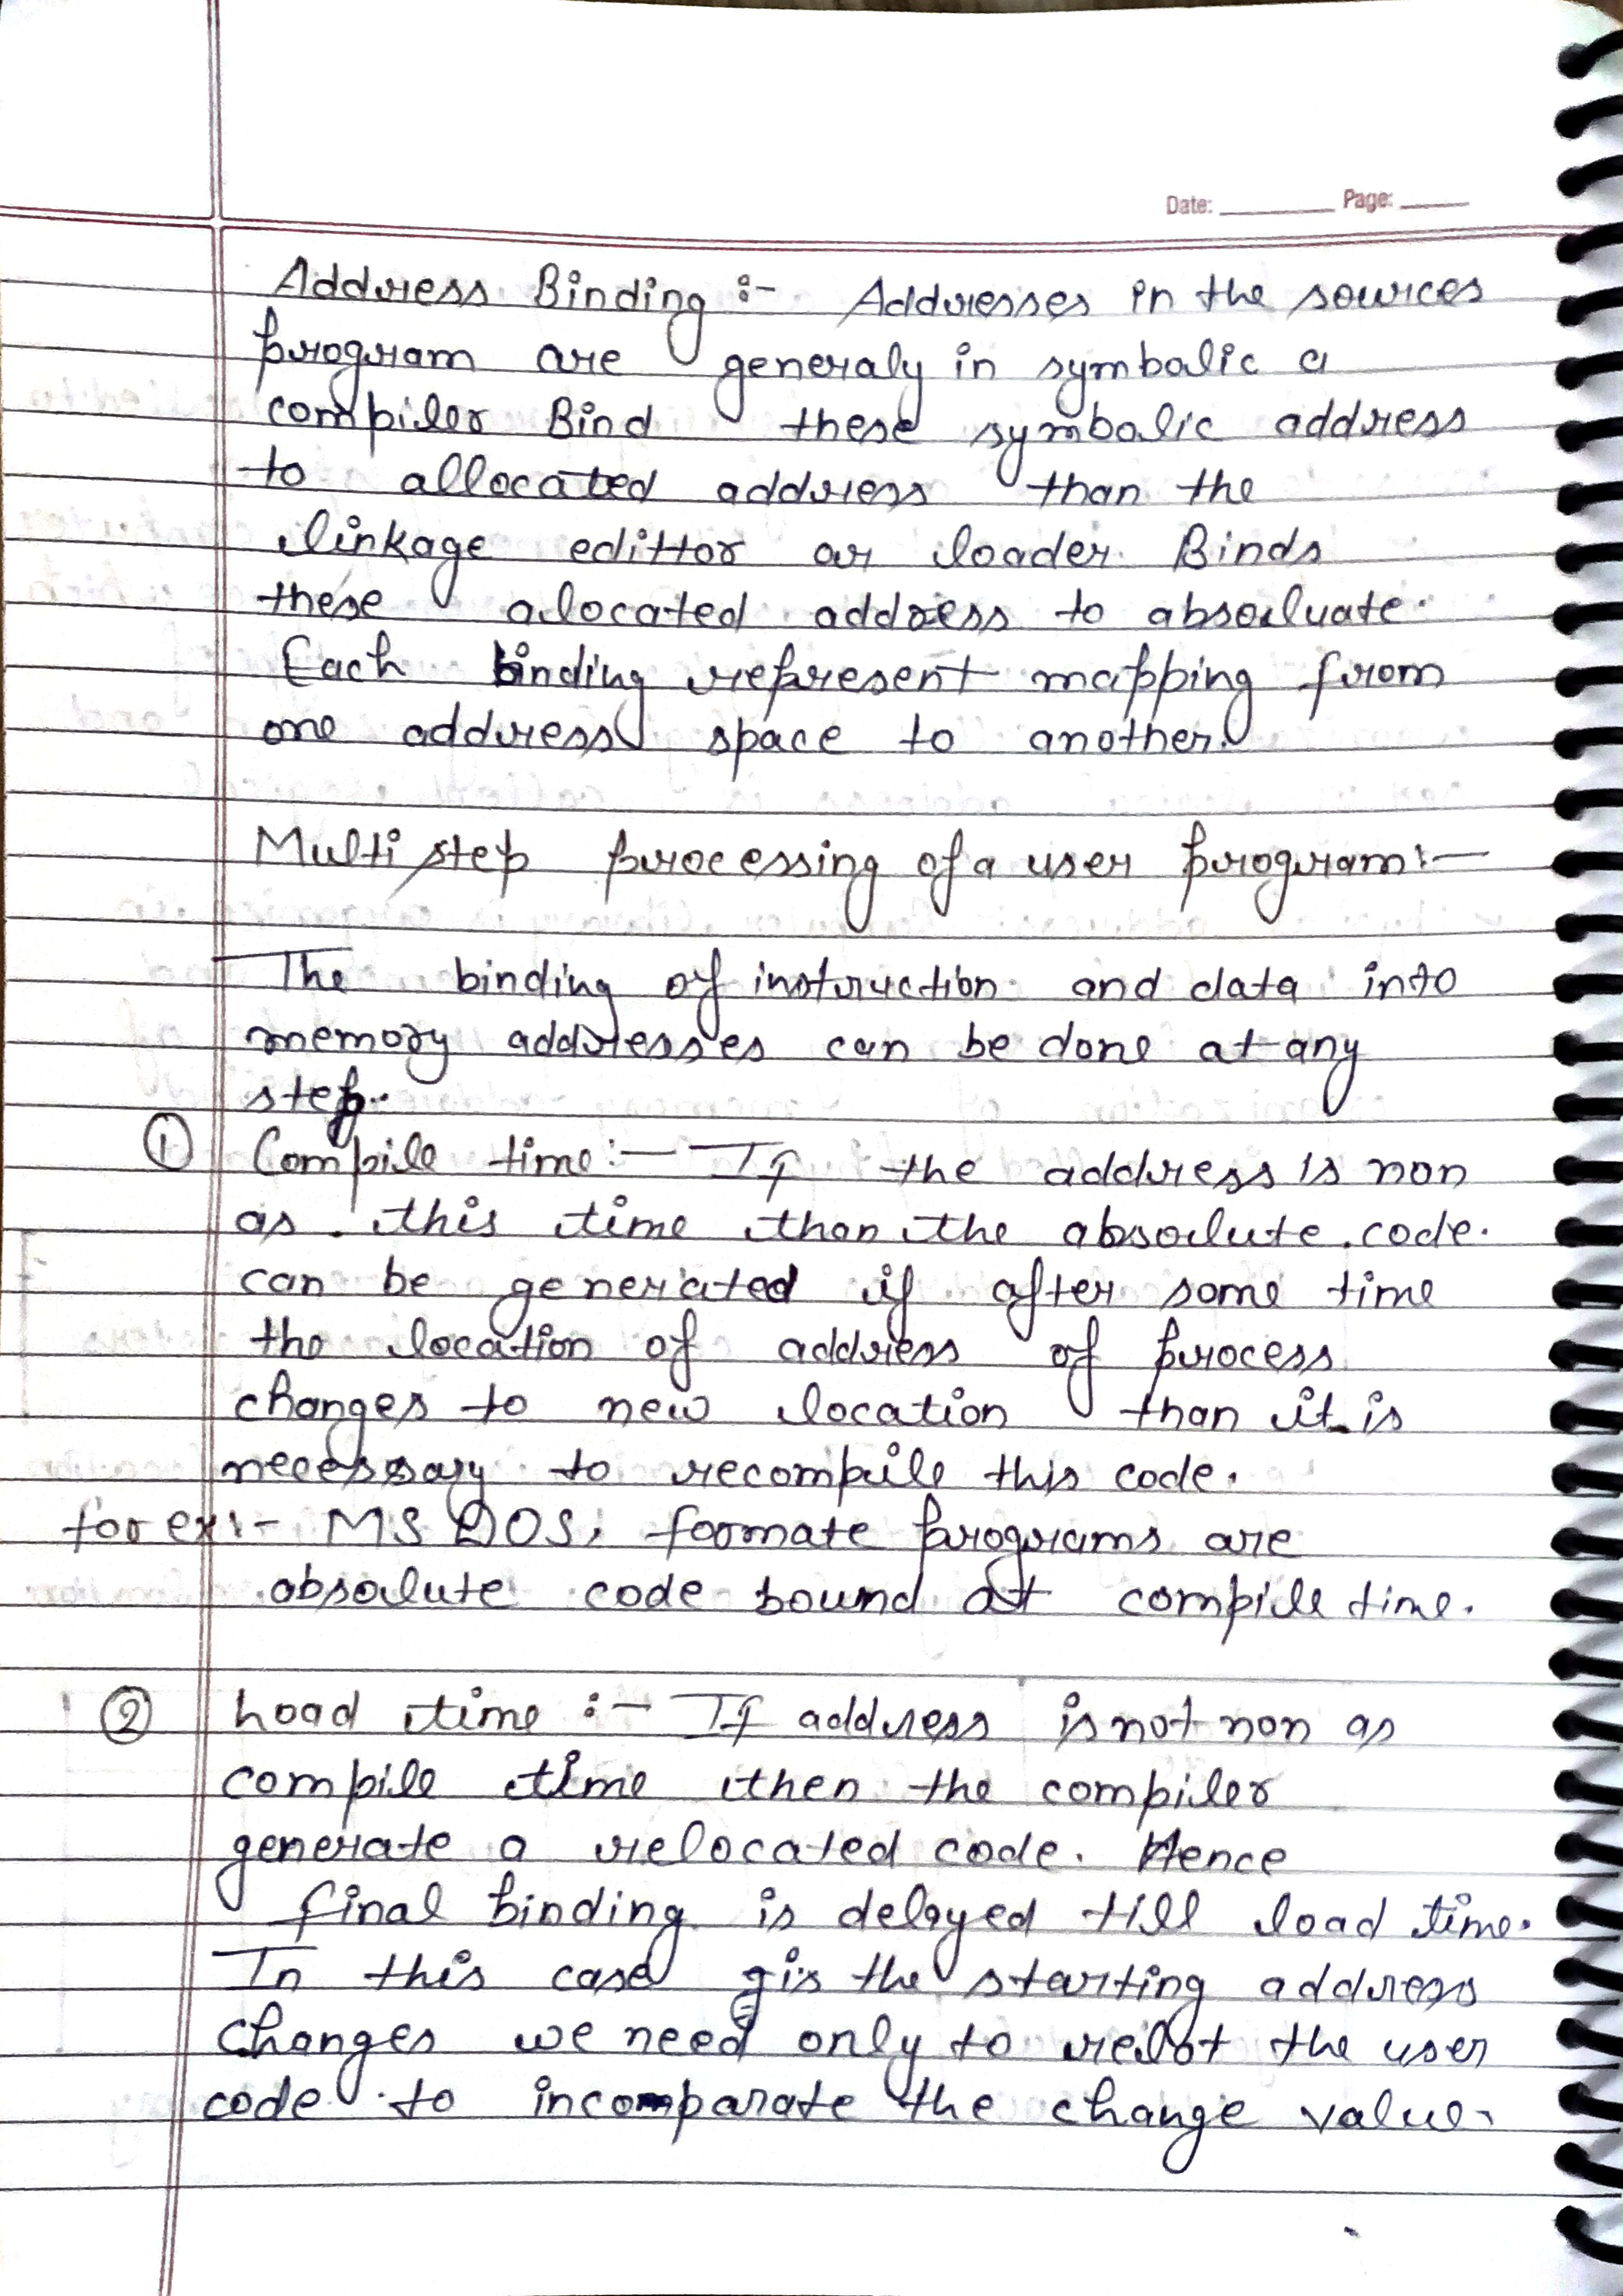 Date: Page:
Address Binding :- Addresses in the sources
program are generaly in symbolic a
compiler Bind these symbolic address
to allocated address than the
linkage edittor or loader Binds
these alocated address to absoluate.
Each binding represent mapping from
one address space to another.
Multi step processing of a user program :-
The binding of instruction and data into
memory addresses can be done at any
step.
① Compile time :- If the address is non
as this time than the absolute code.
can be generated if after some time
the location of address of process
changes to new location than it is
necessary to recompile this code.
for ex :- MS DOS, formate programs are
absolute code bound at compile time.
② Load time :- If address is not non as
compile time then the compiler
generate a relocated code. Hence
final binding is delayed till load time.
In this case the starting address
changes we need only to the user
code to incomparate the change value.